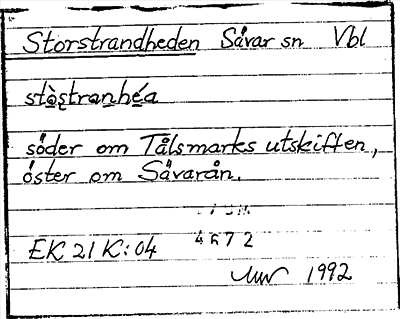 Storstrandheden Sävar sn Vbl
stòs̨tranhéa
söder om Tålsmarks utskiften,
öster om Sävarån.
EK 21 K:04 4672
1992